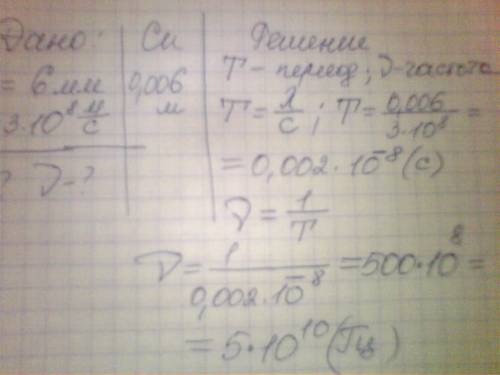 Дано: Си Решение
= 6мм 0,006 м T - период; ν-частота
3·10⁸ м/с T = λ/c ; T = 0,006/3·10⁸ =
? ν-? = 0,002·10⁻⁸ (с)
ν = 1/T
ν = 1/0,002·10⁻⁸ = 500·10⁸ =
= 5·10¹⁰ (Гц)